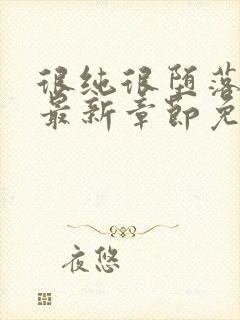 很纯很堕落
最新章节免
夜悠